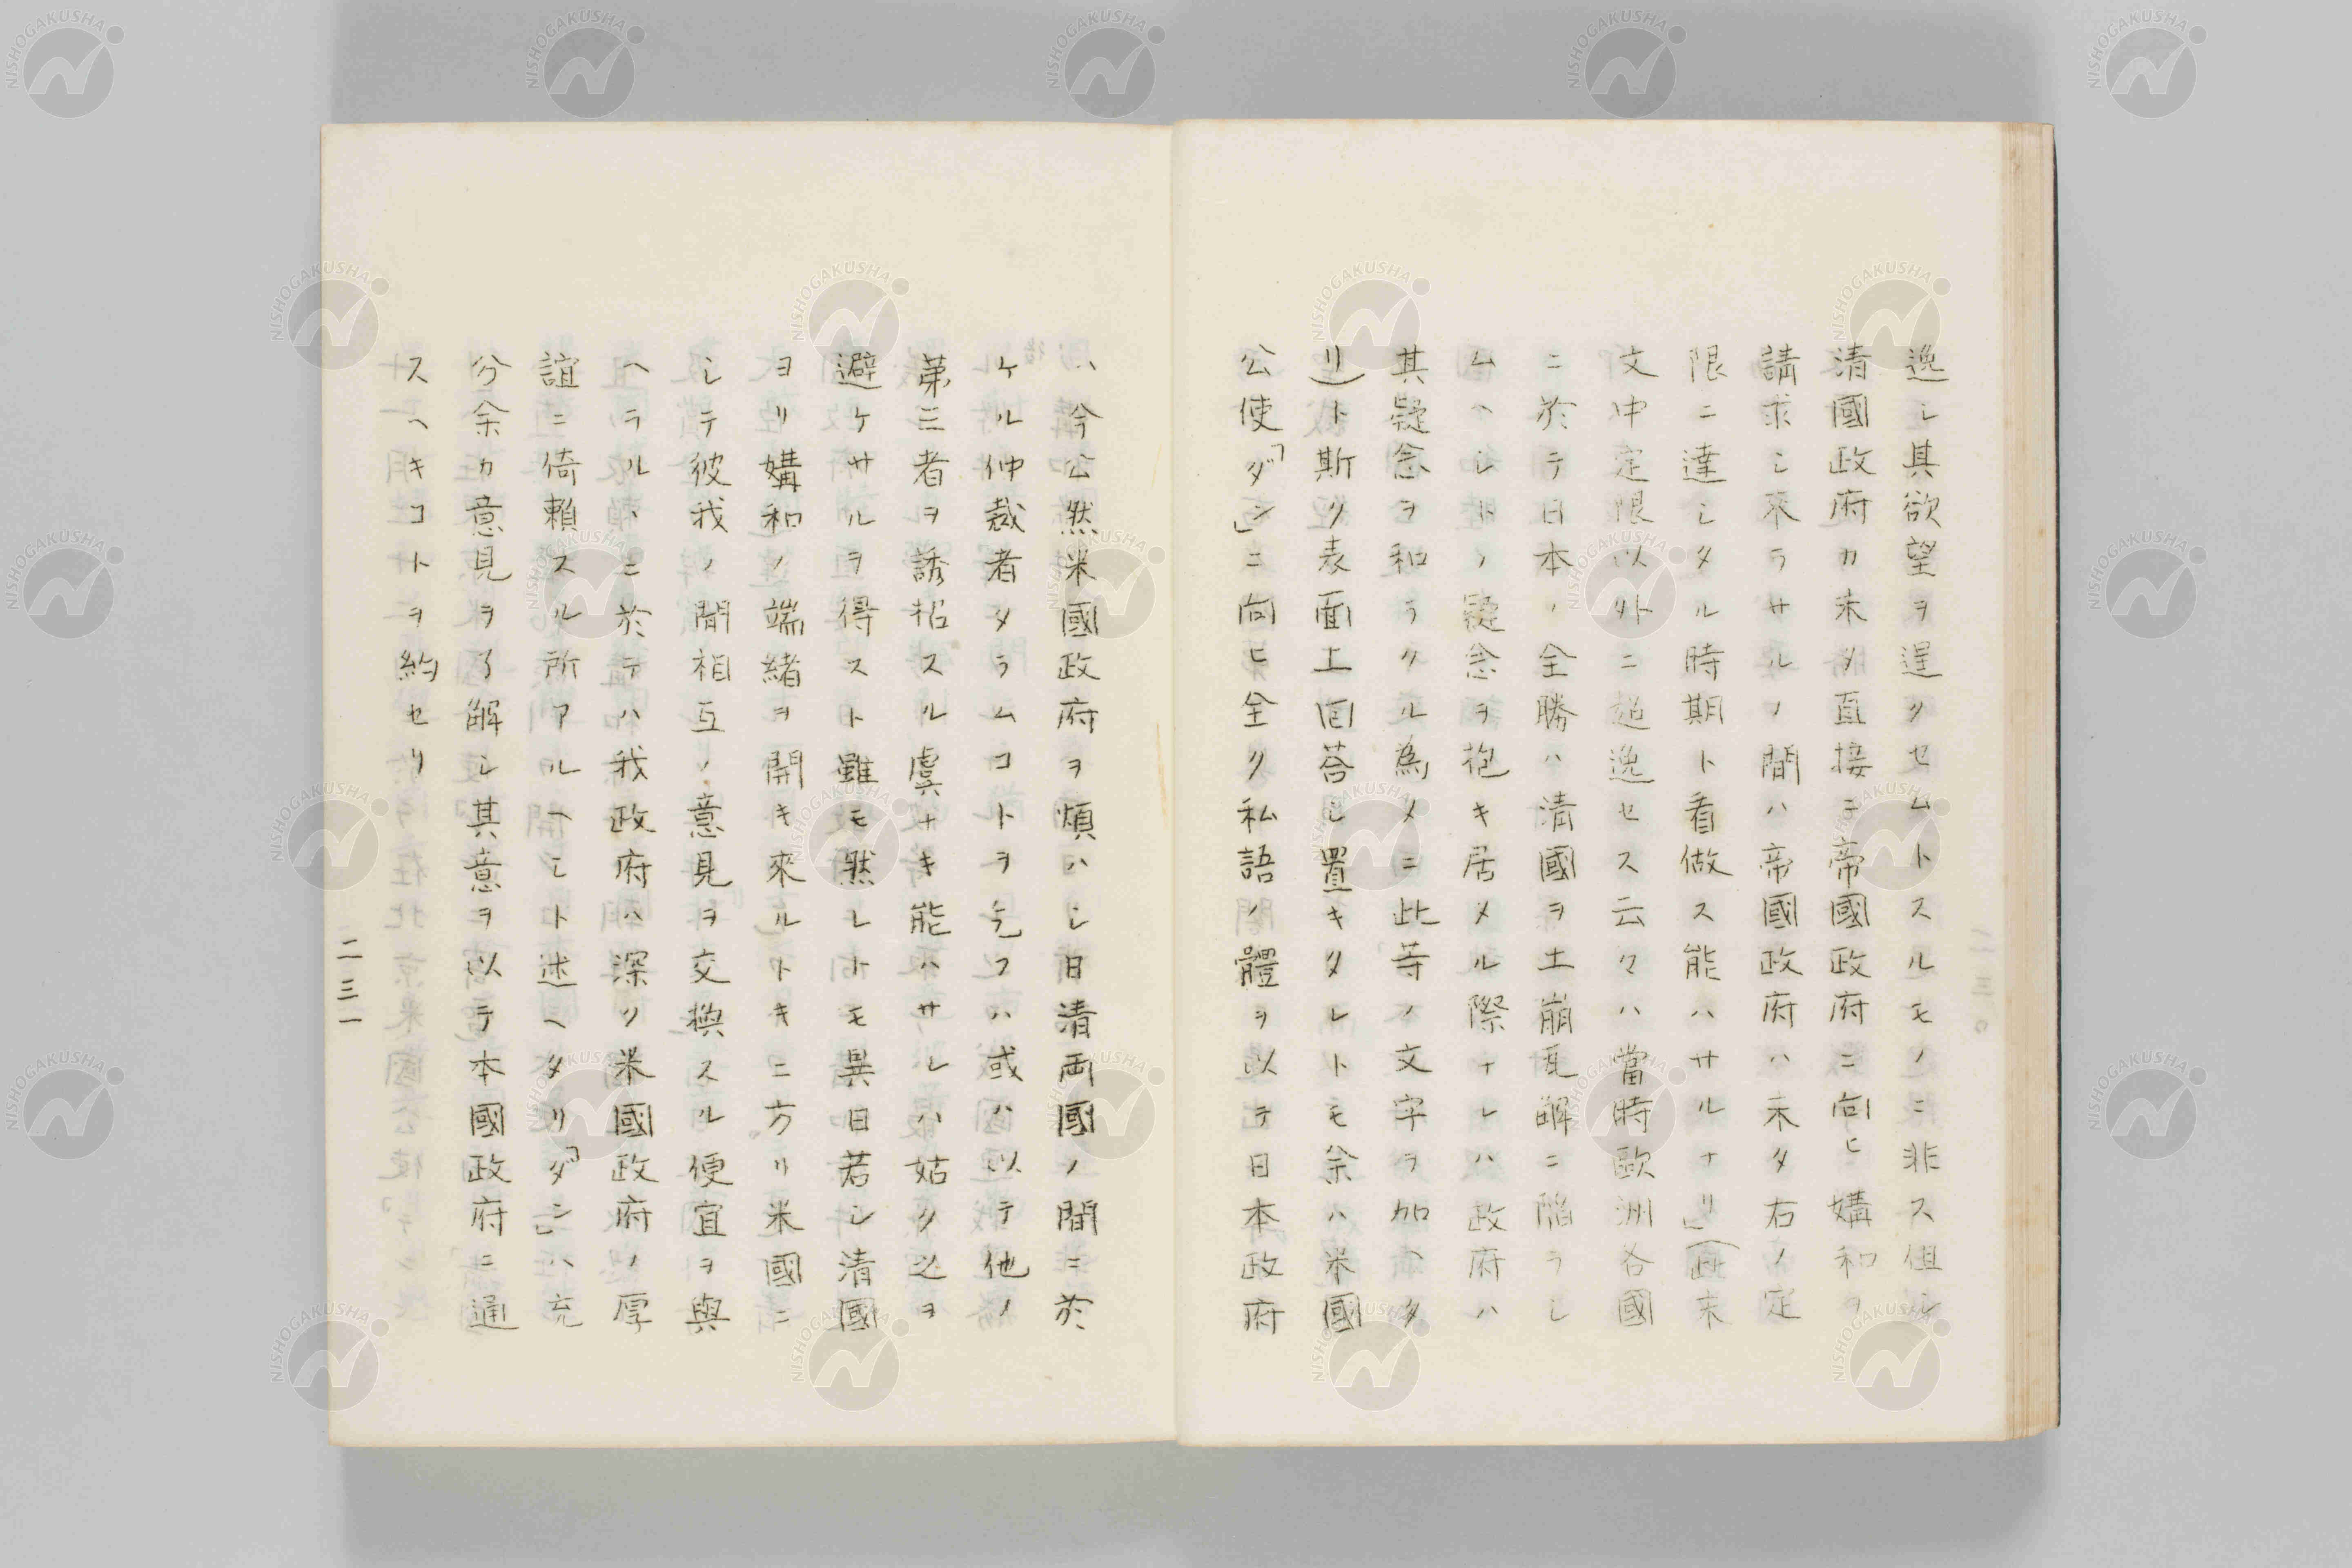 逸シ其欲望ヲ逞クセムトスルモノニ非ス但シ
清國政府カ未タ直接ニ帝國政府ニ向ヒ媾和ヲ
請求シ來ラサルノ間ハ帝國政府ハ未タ右ノ定
限ニ達シタル時期ト看做ス能ハサルナリ」(此末
文中定限以外ニ超逸セス云々ハ當時歐洲各國
ニ於テ日本ノ全勝ハ清國ヲ土崩瓦解ニ陥ラシ
ムヘシトノ疑念ヲ抱キ居メル際ナレハ政府ハ
其疑念ヲ和ラクル為メニ此等ノ文字ヲ加ヘタ
リ)ト斯ク表面上回答シ置キタレトモ余ハ米國
公使「ダン」ニ向ヒ全ク私語ノ體ヲ以テ日本政府
ハ今公然米國政府ヲ煩ハシ日清両國ノ間ニ於
ケル仲裁者タラムコトヲ乞フハ或ハ以テ他ノ
第三者ヲ誘招スル虞ナキ能ハサレハ姑ク之ヲ
避ケサルヲ得スト雖モ然レトモ異日若シ清國
ヨリ媾和ノ端緒ヲ開キ來ルトキニ方リ米國ニ
シテ彼我ノ間相互ノ意見ヲ交換スル便宜ヲ與
ヘラルヽニ於テハ我政府ハ深ク米國政府ノ厚
誼ニ倚頼スル所アルヘシト述ヘタリ「ダン」ハ充
分余カ意見ヲ了解シ其意ヲ以テ本國政府ニ通
スヘキコトヲ約セリ
二三一
NISHOGAKUSHA